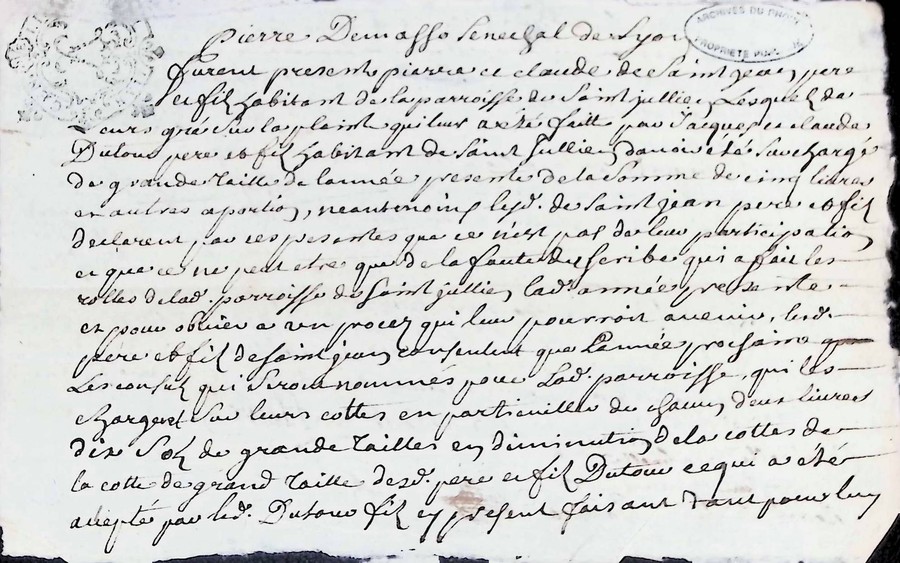 Pierre Demasso Senechal de Lyon
ARCHIVES DU RHÔNE
PROPRIETE PUBL
furent present pierre et claude de Saint jean pere
et fil habitant de la parroisse de Saint jullien Lesquel de
leurs gré sur la plainte qui leur a été faitt par Jacques et claude
Dutour pere et fil habitant de Saint Jullien davoir été surchargé
de grande taille de lannée presente de la somme de cinq livres
en autres aportion, neantmoins lesd. de Saint jean pere et fil
declarent par ces presentes que ce n'est pas de leur participation
et que ce ne peut etre que de la faute du scribe qui a fait les
rolles de lad. parroisse de Saint jullien lad. années presente
et pour obvier a un procez qui leur pourroit avenir, lesd.
pere et fil de Saint jean consentent que L'année prochaine que
Les consul qui seront nommés pour Lad. parroisse, qui les
chargent sur leurs cottes en particuillier de chacun deux livres
dix sols de grande tailles en diminution de la cottes de
la cotte de grand taille desd. pere et fil Dutour ce qui a été
accepté par led. Dutour fil cy present faisant tant pour luy